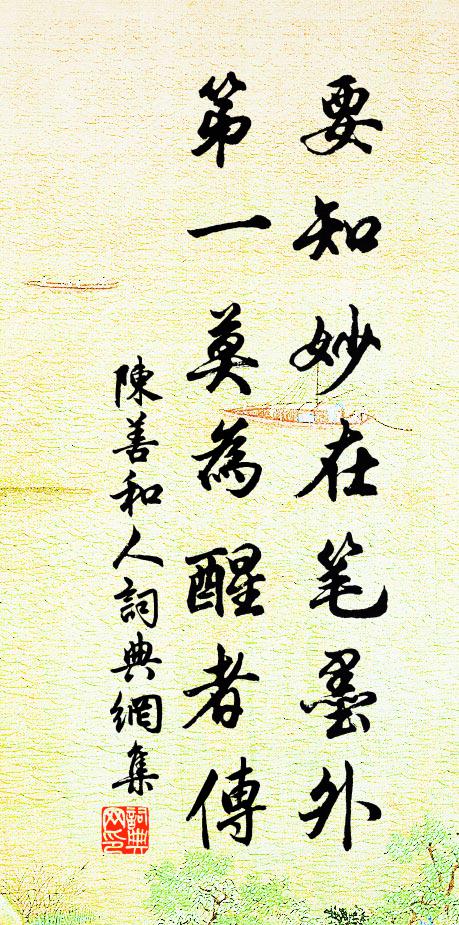 要知妙在笔墨外
第一莫為醒者傳
陳善和人詞典網集
詞典网印